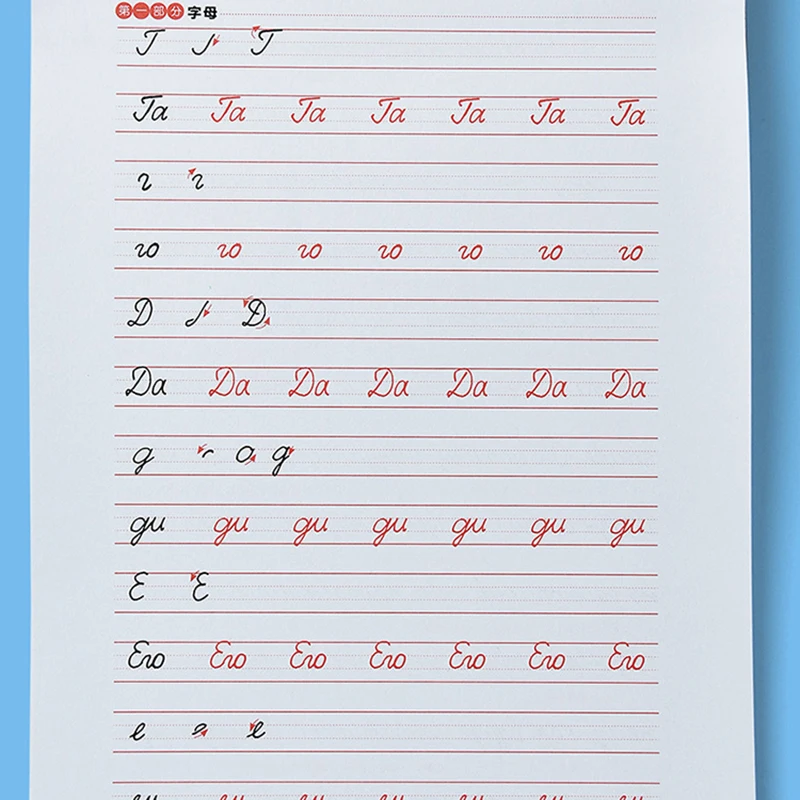 第一部分 字母
Г Г Г
Га Га Га Га Га Га Га
г г
го го го го го го го
Д Д Д
Да Да Да Да Да Да Да
д д д
ди ди ди ди ди ди ди
Е Е
Его Его Его Его Его Его Его
е е е